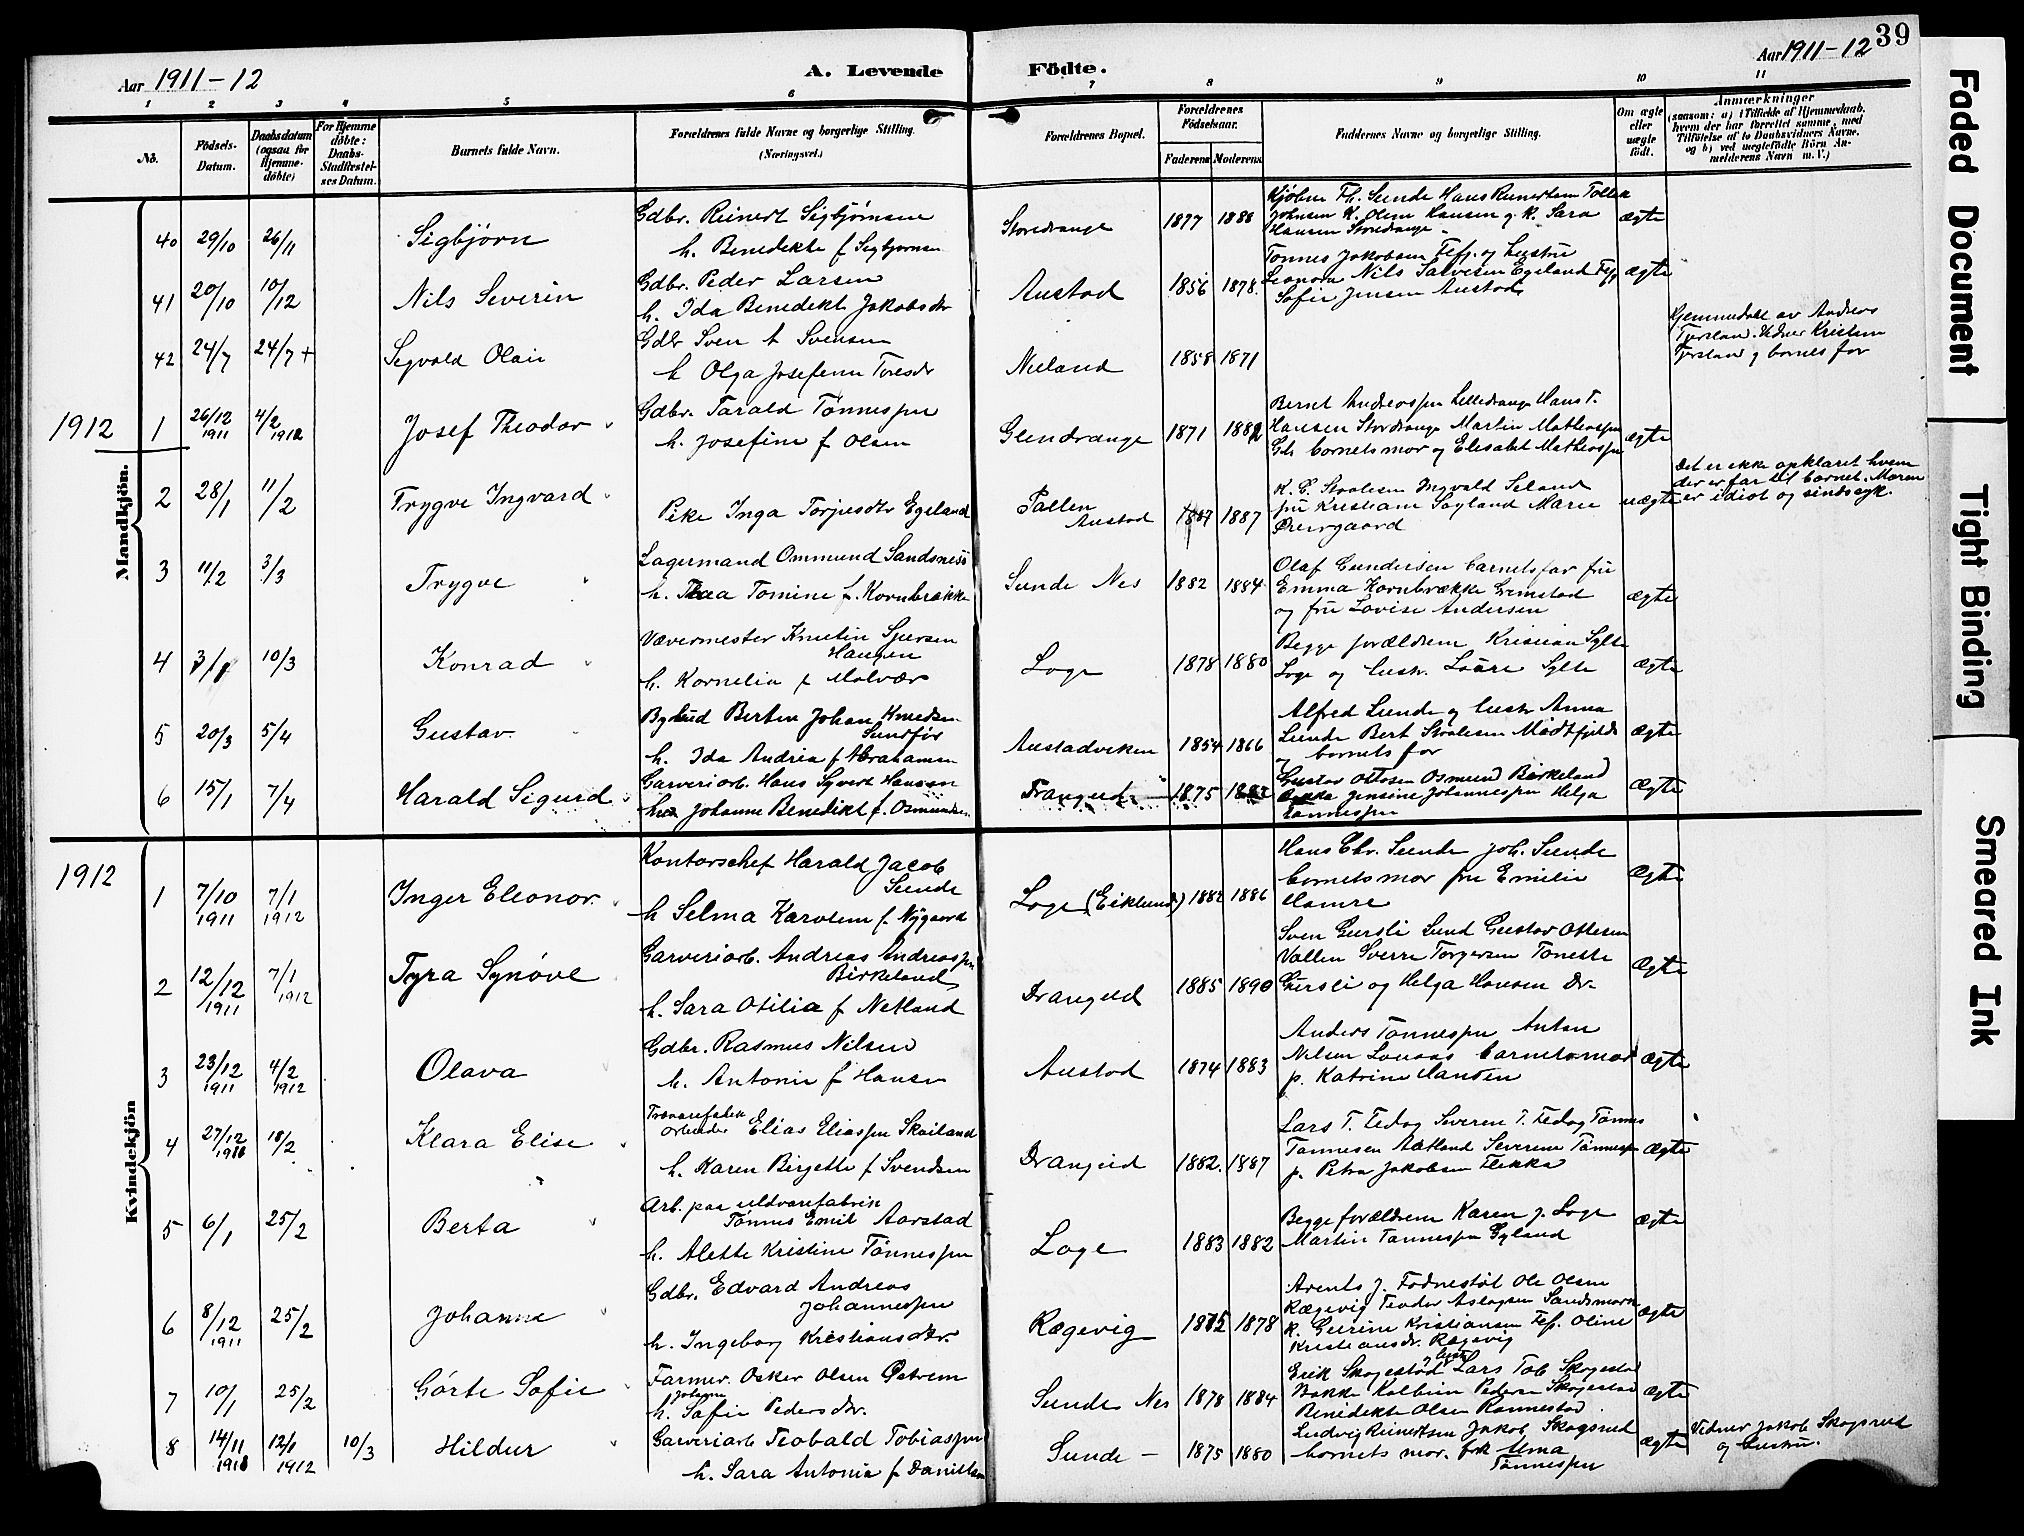 Aar 1911-12
A. Levende
Födte.
Aar 1911-12
39
1 2 3 4 5 6 7 8 9 10 11
No.
Födsels-Datum.
Daabsdatum (ogsaa for Hjemme-döbte)
For Hjemme döbte: Daabs-Stadfæstel-ses Datum.
Barnets fulde Navn.
Forældrenes fulde Navne og borgerlige Stilling.
(Næringsvei.)
Forældrenes Bopæl.
Forældrenes Födselsaar.
Faderens Moderens
Faddernes Navne og borgerlige Stilling.
Om ægte eller uægte födt.
Anmærkninger
(saasom: a) i Tilfælde af Hjemmedaab,
hvem der har forrettet samme, med
Tilföielse af to Daabsvidners Navne,
og b) ved uægtefödte Börn An-
melderens Navn m. V.)
Mandkjön.
40 29/10 26/11 Sigbjørn
Gdbr. Reinert Sigbjørnsen
h. Benedikte f Sigbjørnsen
Storedrange 1877 1888
Sunde Hans Reinertsen
Johnsen K. Olene Hansen g. K. Sara
Hansen Storedrange
ægte
41 20/10 10/12 Nils Severin
Gdbr. Peder Larsen
h. Ida Benedikt Jakobsdtr
Austad 1856 1878
Tønnes Jakobsen og hustru
Leonora Nils Salvesen Egeland
Sofie Jensen Austad
ægte
42 24/7 24/7 + Sigvald Olai
Gdbr Sven Svensen
h Olga Josefine Toresdr
Nuland 1858 1871
Hjemmedøbt av Andreas
Kristian
g barnets far
1912
1 26/12 1911 4/2 1912 Josef Theodor
Gdbr. Tarald Tønnessen
h. Josefine f Olsen
Glendrange 1871 1882
Bernt Andreassen Lilledrange Hans T.
Hansen Stordrange Martin Mathiassen
barnets mor og Elisabet Mathiassen
ægte
2 28/1 11/2 Trygve Ingvard
Pike Inga Torjusdtr Egeland
Pallen Austad 1887
Ingvald Seland
fru Kristiane Søyland Marie
uægte
Det er ikke opklaret hvem
der er far til barnet. Moren
er idiot og sindssyk.
3 11/2 3/3 Trygve
Lagermand Ommund Sandsnes
h. Thea Tomine f. Kornbrække
Sunde Nes 1882 1884
Olaf Gundersen barnets far fru
Emma Kornbrække Grimstad
og fru Lovise Andersen
ægte
4 10/3 Konrad
Vævermester Knutin
Haugen
h. Kornelia f Molvær
Loge 1878 1880
Begge forældrene Kristian Sylte
Loge og hustr. Laura Sylte
ægte
5 20/3 5/4 Gustav
Bybud Berten Johan Knudsen
Sundfør
h. Ida Andrea f Abrahamsen
Austadviken 1854 1866
Alfred Sunde og hustr Anna
Sunde Bert Staalesen Midtfjeld
g barnets far
ægte
6 15/1 7/4 Harald Sigurd
Garveriarb. Hans Syvert Hansen
Johanne Benedikt f. Osmundsen
Drangeid 1875 1883
Gustav Ottosen Osmund Birkeland
Jensine Johannessen Helga
Tønnessen
ægte
1912
Kvindekjön
1 7/10 1911 7/1 1912 Inger Eleonor
Kontorschef Harald Jacob
Sunde
h Selma Karoline f. Nygaard
Loge (Eiklund) 1882 1886
Hans Chr. Sunde Joh. Sunde
barnets mor fru Emilie
Hamre
ægte
2 12/12 1911 7/1 1912 Tyra Synøve
Garveriarb. Andreas Andreassen
Birkeland
h. Sara Otilia f Netland
Drangeid 1885 1890
Sven Gursli Lund Gustav Ottesen
Vollen Sverre Torgersen Tonette
Gursli og Helga Hansen Dr.
ægte
3 23/12 1911 4/2 1912 Olava
Gdbr. Rasmus Nilsen
h. Antonie f Hansen
Austad 1874 1883
Anders Tønnessen Anton
Nilsen Lonaas barnets mor
p. Katrine Hansen
ægte
4 27/12 18/2 Klara Elise
Trævarefabrik
arbeider Elias Eliassen Skailand
h. Karen Birgette f Svendsen
Drangeid 1882 1887
Lars T. Fedog Severin T. Fedog Tønnes
Tønnesen Aatland Severine Tønnessen
p. Petra Jakobsen Flikka
ægte
5 6/1 25/2 Berta
Arb. paa uldvarefabrik
Tønnes Emil Aarstad
h. Alette Kristine Tønnessen
Loge 1883 1882
Begge forældrene Karen J. Loge
Martin Tønnessen Gyland
ægte
6 8/12 1911 25/2 Johanne
Gdbr. Edvard Andreas
Johannessen
h. Ingeborg Kristiansdtr.
Rægevig 1875 1878
Arents J. Fodnestøl Ole Olsen
Rægevig Teodor Aslagsen Sandsmork
K. Gurine Kristiansen Fef. Oline
Kristiansdr. Rægevig
ægte
7 10/1 25/2 Görte Sofie
Farmer. Osker Olsen Østrem
h. Sofie Pedersdtr.
Sunde Nes 1878 1884
Erik Skogestad g hust Lars Tob. Skogestad
Bakke Kolbein Pedersen Skogestad
Benedikte Olsen Rannestad
ægte
8 14/11 12/1 1912 10/3 Hildur
Garveriarb Teobald Tobiassen
h. Sara Antonia f Danielsen
Sunde 1875 1880
Ludvig Reinertsen Jakob Skogsrud
barnets mor. frk Alma
Tønnessen
ægte
Vidner Jakob Skogsrud
og hustru.
Faded Document
Tight Binding
Smeared Ink